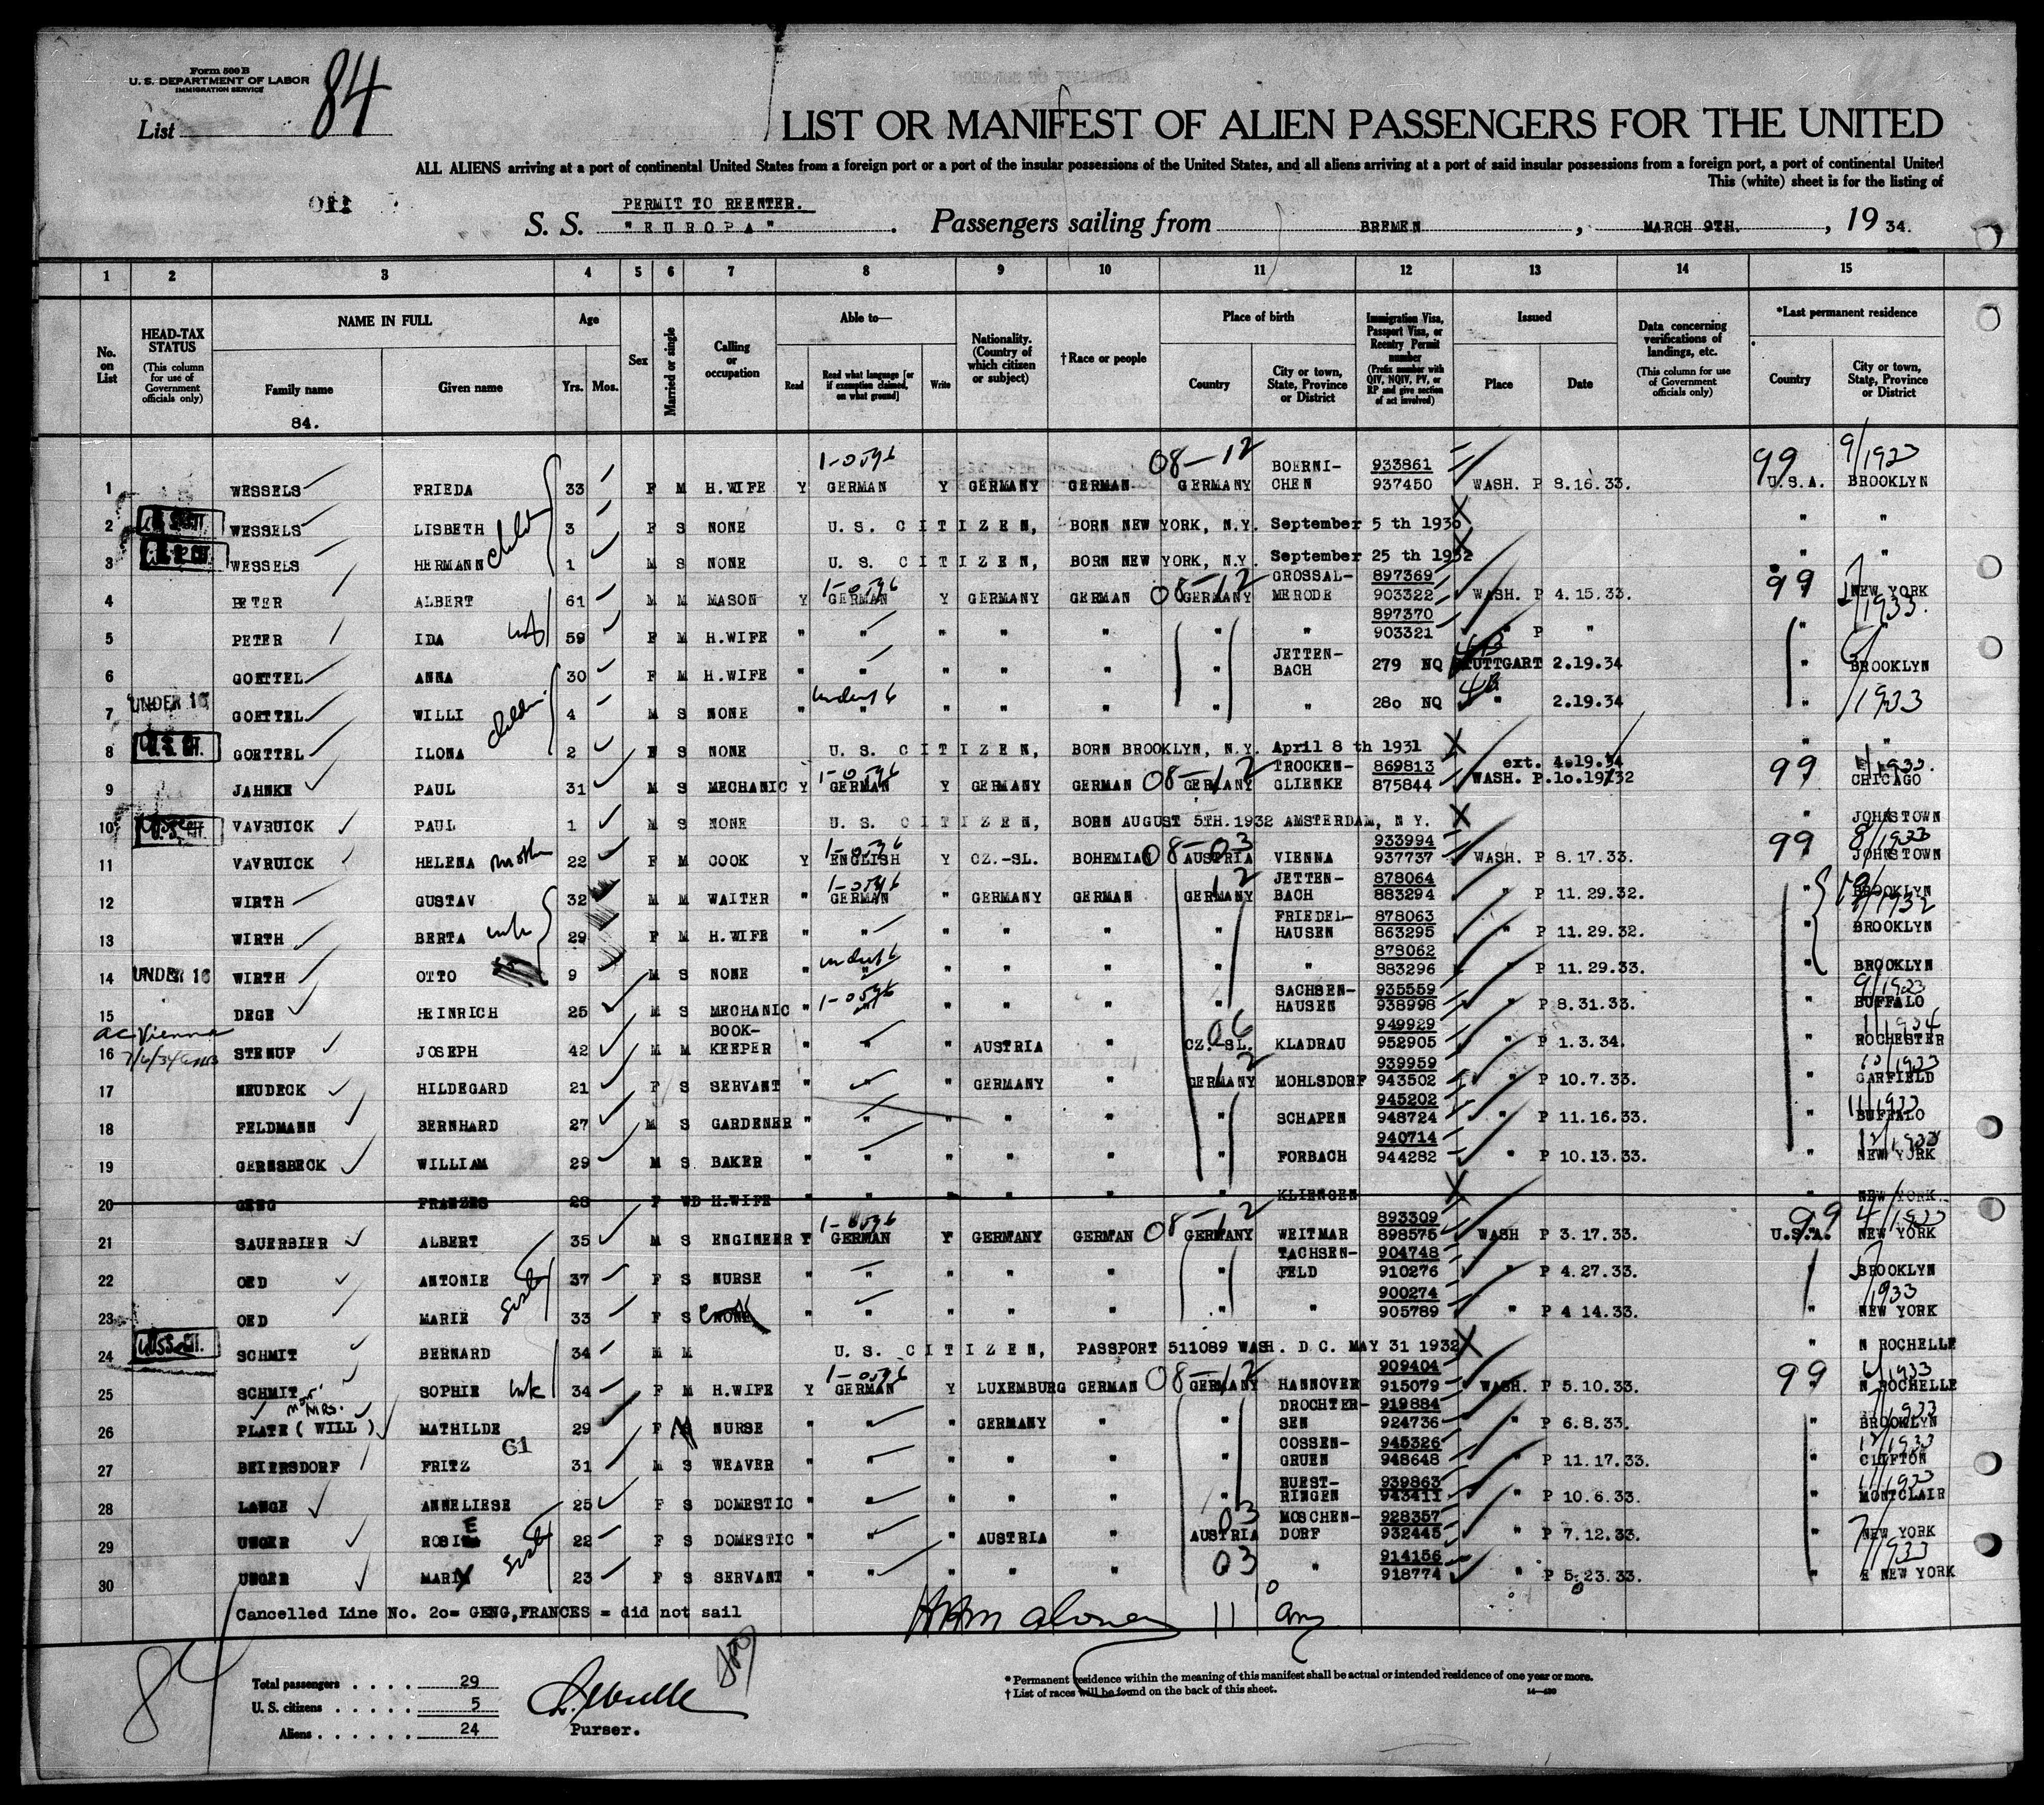 Form 500 B
U. S. DEPARTMENT OF LABOR
IMMIGRATION SERVICE
List 84
LIST OR MANIFEST OF ALIEN PASSENGERS FOR THE UNITED
ALL ALIENS arriving at a port of continental United States from a foreign port or a port of the insular possessions of the United States, and all aliens arriving at a port of said insular possessions from a foreign port, a port of continental United
This (white) sheet is for the listing of
110
PERMIT TO REENTER.
S. S. "EUROPA" . Passengers sailing from BREMEN , MARCH 9TH. , 19 34.
1 2 3 4 5 6 7 8 9 10 11 12 13 14 15
No. on List
HEAD-TAX STATUS (This column for use of Government officials only)
NAME IN FULL Family name Given name
Age Yrs. Mos.
Sex
Married or single
Calling or occupation
Able to— Read Read what language [or if exemption claimed, on what ground] Write
Nationality. (Country of which citizen or subject)
†Race or people
Place of birth Country City or town, State, Province or District
Immigration Visa, Passport Visa, or Reentry Permit number (Prefix number with QIV, NQIV, PV, or RP and give section of act involved)
Issued Place Date
Data concerning verifications of landings, etc. (This column for use of Government officials only)
*Last permanent residence Country City or town, State, Province or District
84.
1-0596 08-12 BOERNI- 933861 99 9/1933
1 WESSELS FRIEDA 33 F M H.WIFE Y GERMAN Y GERMANY GERMAN GERMANY CHEN 937450 WASH. P 8.16.33. U.S.A. BROOKLYN
2 WESSELS LISBETH 3 F S NONE U. S. CITIZEN, BORN NEW YORK, N.Y. September 5 th 1930 " "
3 WESSELS HERMANN child 1 M S NONE U. S. CITIZEN, BORN NEW YORK, N.Y. September 25 th 1932 " "
1-0596 08-12 GROSSAL- 897369 99
4 PETER ALBERT 61 M M MASON Y GERMAN Y GERMANY GERMAN GERMANY MERODE 903322 WASH. P 4.15.33. NEW YORK
897370 1933.
5 PETER IDA wife 59 F M H.WIFE " " " " " " " 903321 " P " "
JETTEN-
6 GOETTEL ANNA 30 F M H.WIFE " " " " " " BACH 279 NQ STUTTGART 2.19.34 " BROOKLYN
7 UNDER 16 GOETTEL WILLI 4 M S NONE " under 16 " " " " " " 280 NQ " 2.19.34 " 1933
8 U.S. CIT. GOETTEL ILONA 2 F S NONE U. S. CITIZEN, BORN BROOKLYN, N.Y. April 8 th 1931 " "
1-0596 08-12 TROCKEN- 869813 ext. 4.19.34 99
9 JAHNKE PAUL 31 M S MECHANIC Y GERMAN Y GERMANY GERMAN GERMANY GLIENKE 875844 WASH. P.10.19/32 CHICAGO
10 VAVRUICK PAUL 1 M S NONE U. S. CITIZEN, BORN AUGUST 5TH.1932 AMSTERDAM, N. Y. " JOHNSTOWN
1-0596 08-03 933994 99 8/1933
11 VAVRUICK HELENA mother 22 F M COOK Y ENGLISH Y CZ.-SL. BOHEMIAN AUSTRIA VIENNA 937737 WASH. P 8.17.33. JOHNSTOWN
1-0596 12 JETTEN- 878064
12 WIRTH GUSTAV 32 M M WAITER " GERMAN " GERMANY GERMAN GERMANY BACH 883294 " P 11.29.32. " BROOKLYN
FRIEDEL- 878063
13 WIRTH BERTA wife 29 F M H.WIFE " " " " " " HAUSEN 863295 " P 11.29.32. " BROOKLYN
878062
14 UNDER 16 WIRTH OTTO 9 M S NONE " under 16 " " " " " " 883296 " P 11.29.33. " BROOKLYN
1-0596 SACHSEN- 935559 9/1933
15 DEGE HEINRICH 25 M S MECHANIC " " " " " " HAUSEN 938998 " P 8.31.33. " BUFFALO
ac Vienna BOOK- 06 949929 1/1934
16 STENUF JOSEPH 42 M M KEEPER " " " AUSTRIA " CZ.-SL. KLADRAU 952905 " P 1.3.34. " ROCHESTER
12 939959 10/1933
17 NEUDECK HILDEGARD 21 F S SERVANT " " " GERMANY " GERMANY MOHLSDORF 943502 " P 10.7.33. " GARFIELD
945202 11/1933
18 FELDMANN BERNHARD 27 M S GARDENER " " " " " " SCHAPEN 948724 " P 11.16.33. " BUFFALO
940714 12/1933
19 GERNSBECK WILLIAM 29 M S BAKER " " " " " " FORBACH 944282 " P 10.13.33. " NEW YORK
20 GENG FRANZES 28 F WD H.WIFE " " " " " " KLIENGEN " NEW YORK.
1-0596 08-12 893309 99 4/1933
21 SAUERBIER ALBERT 35 M S ENGINEER Y GERMAN Y GERMANY GERMAN GERMANY WEITMAR 898575 WASH P 3.17.33. U.S.A. NEW YORK
TACHSEN- 904748
22 OED ANTONIE 37 F S NURSE " " " " " " FELD 910276 " P 4.27.33. " BROOKLYN
900274 1933
23 OED MARIE sister 33 F S NONE " " " " " " " 905789 " P 4 14.33. " NEW YORK
24 SCHMIT BERNARD 34 M M U. S. CITIZEN, PASSPORT 511089 WASH. D.C. MAY 31 1932 " N ROCHELLE
1-0596 08-12 909404 99 6/1933
25 SCHMIT SOPHIE wife 34 F M H.WIFE Y GERMAN Y LUXEMBURG GERMAN GERMANY HANNOVER 915079 WASH. P 5.10.33. N ROCHELLE
MRS. DROCHTER- 919884
26 PLATE (WILL) MATHILDE 29 F M NURSE " " " GERMANY " " SEN 924736 " P 6.8.33. " BROOKLYN
61 COSSEN- 945326 12/1933
27 BEIERSDORF FRITZ 31 M S WEAVER " " " " " " GRUEN 948648 " P 11.17.33. " CLIFTON
RUEST- 939863 11/1933
28 LANGE ANNELIESE 25 F S DOMESTIC " " " " " " RINGEN 943411 " P 10.6.33. " MONTCLAIR
03 MOSCHEN- 928357
29 UNGER ROSINE 22 F S DOMESTIC " " " AUSTRIA " AUSTRIA DORF 932445 " P 7.12.33. " NEW YORK
03 914156 7/1933
30 UNGER MARY sister 23 F S SERVANT " " " " " " 918774 " P 5.23.33. " E NEW YORK
Cancelled Line No. 20= GENG,FRANCES = did not sail
84
Total passengers . . . . 29
U. S. citizens . . . . . 5
Aliens . . . . . . 24
Purser.
* Permanent residence within the meaning of this manifest shall be actual or intended residence of one year or more.
† List of races will be found on the back of this sheet.
14—430